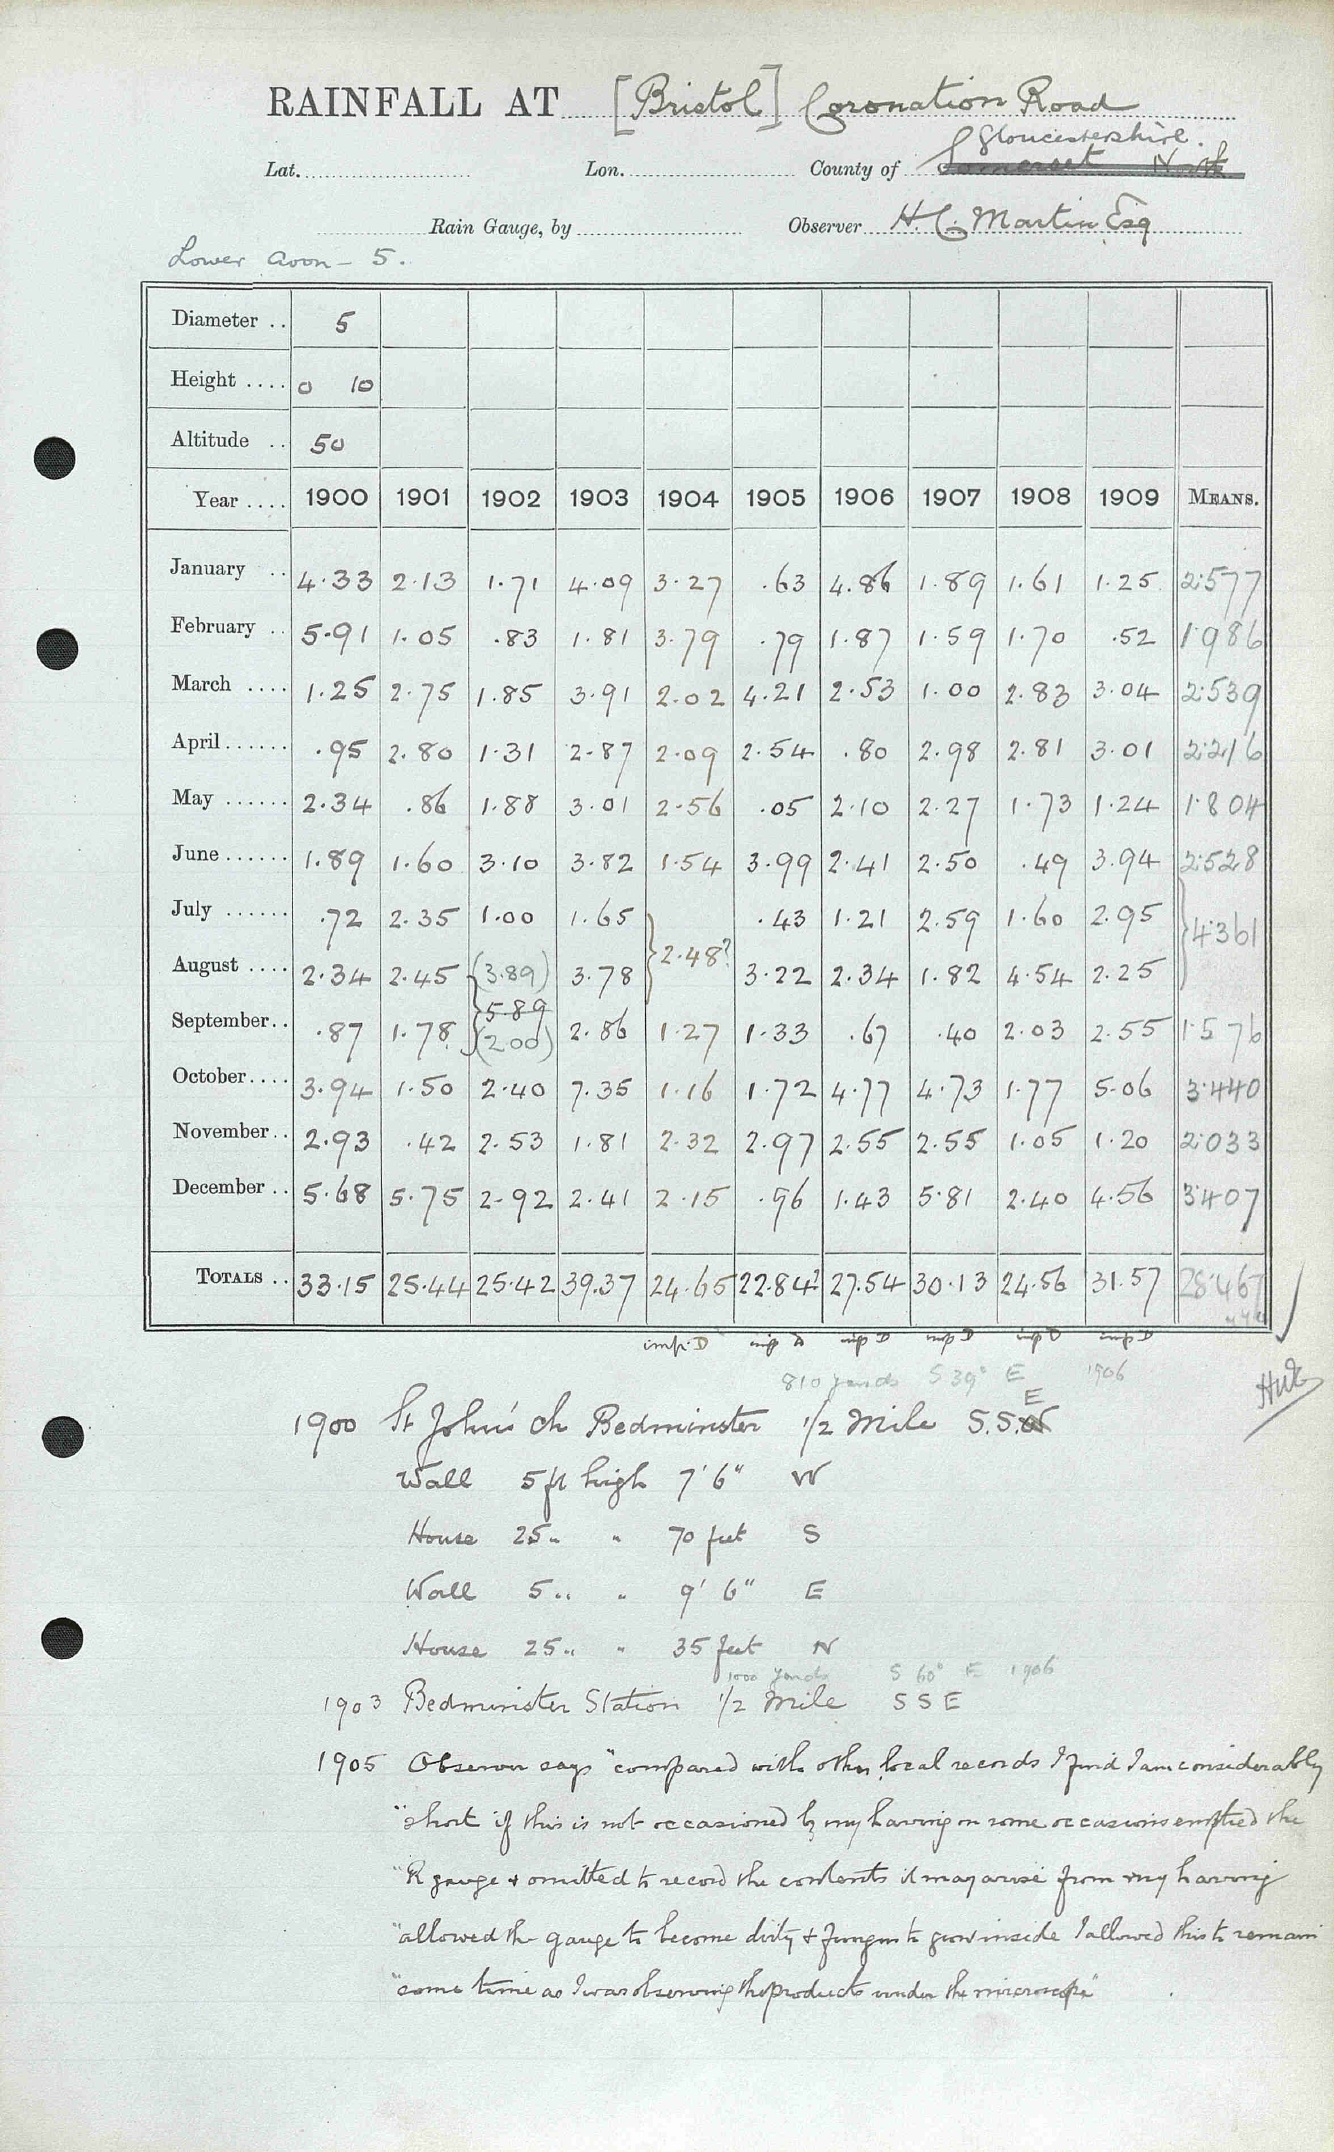 RAINFALL AT [Bristol] Coronation Road
Gloucestershire.
Lat. Lon. County of Somerset North
Rain Gauge, by Observer H. C. Martin Esq
Lower Avon – 5.
Diameter .. 5
Height .... 0 10
Altitude .. 50
Year .... 1900 1901 1902 1903 1904 1905 1906 1907 1908 1909 MEANS.
January .. 4.33 2.13 1.71 4.09 3.27 .63 4.86 1.89 1.61 1.25 2.577
February .. 5.91 1.05 .83 1.81 3.79 .79 1.87 1.59 1.70 .52 1.986
March .... 1.25 2.75 1.85 3.91 2.02 4.21 2.53 1.00 2.83 3.04 2.539
April ...... .95 2.80 1.31 2.87 2.09 2.54 .80 2.98 2.81 3.01 2.216
May ...... 2.34 .86 1.88 3.01 2.56 .05 2.10 2.27 1.73 1.24 1.804
June ...... 1.89 1.60 3.10 3.82 1.54 3.99 2.41 2.50 .49 3.94 2.528
July ...... .72 2.35 1.00 1.65 .43 1.21 2.59 1.60 2.95
2.48? 4.361
August .... 2.34 2.45 (3.89) 3.78 3.22 2.34 1.82 4.54 2.25
5.89
September .. .87 1.78 (2.00) 2.86 1.27 1.33 .67 .40 2.03 2.55 1.576
October .... 3.94 1.50 2.40 7.35 1.16 1.72 4.77 4.73 1.77 5.06 3.440
November .. 2.93 .42 2.53 1.81 2.32 2.97 2.55 2.55 1.05 1.20 2.033
December .. 5.68 5.75 2.92 2.41 2.15 .96 1.43 5.81 2.40 4.56 3.407
TOTALS .. 33.15 25.44 25.42 39.37 24.65 22.84? 27.54 30.13 24.56 31.57 28.467
imp. D imp D imp D imp D imp D imp D
810 yards S 39° E 1906
E
1900 St John's Ch Bedminster 1/2 Mile S.S.W
Wall 5 ft high 7' 6" W
House 25 " " 70 feet S
Wall 5 " " 9' 6" E
House 25 " " 35 feet N
1000 yards S 60° E 1906
1903 Bedminster Station 1/2 Mile S S E
1905 Observer says "compared with other local records I find I am considerably
"short if this is not occasioned by my having on some occasions emptied the
"R gauge & omitted to record the contents it may arise from my having
"allowed the gauge to become dirty & fungus to grow inside I allowed this to remain
"some time as I was observing the products under the microscope"